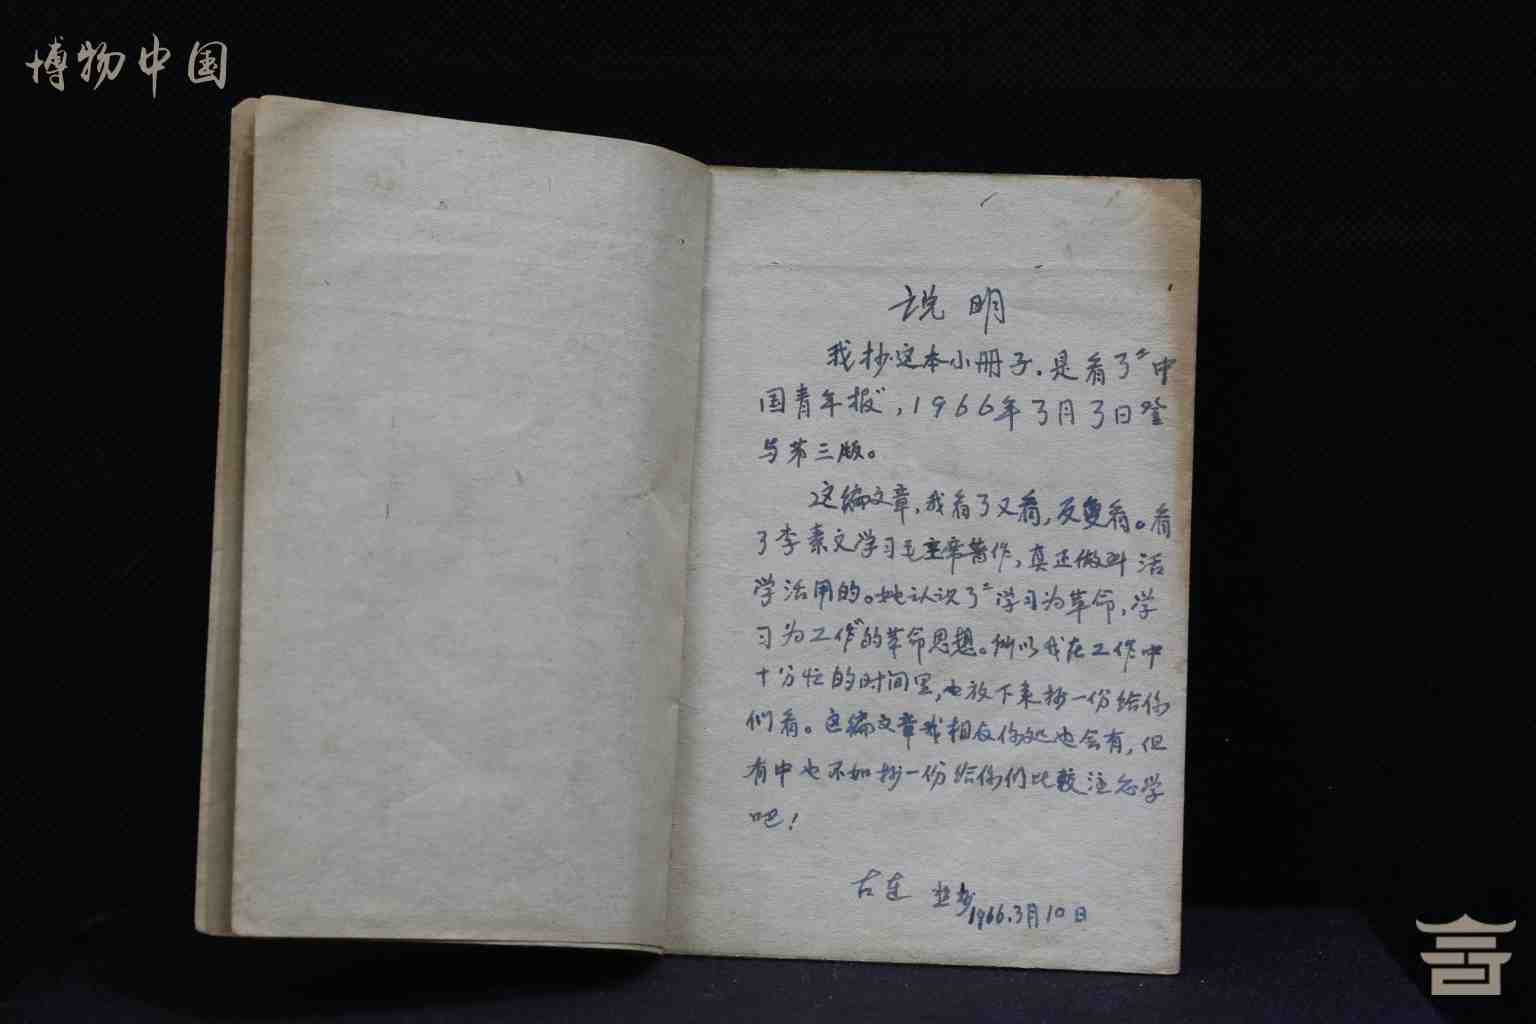 博物中国
说明
我抄这本小册子.是看了"中
国青年报",1966年3月3日登
与第三版。
这编文章,我看了又看,反复看。看
了李素文学习毛主席著作,真正做到活
学活用的。她认识了"学习为革命,学
习为工作"的革命思想。所以我在工作中
十分忙的时间里,也放下来抄一份给你
们看。这编文章我相反你处也会有,但
有中也不如抄一份给你们比较注意学
吧!
古连
1966.3月10日